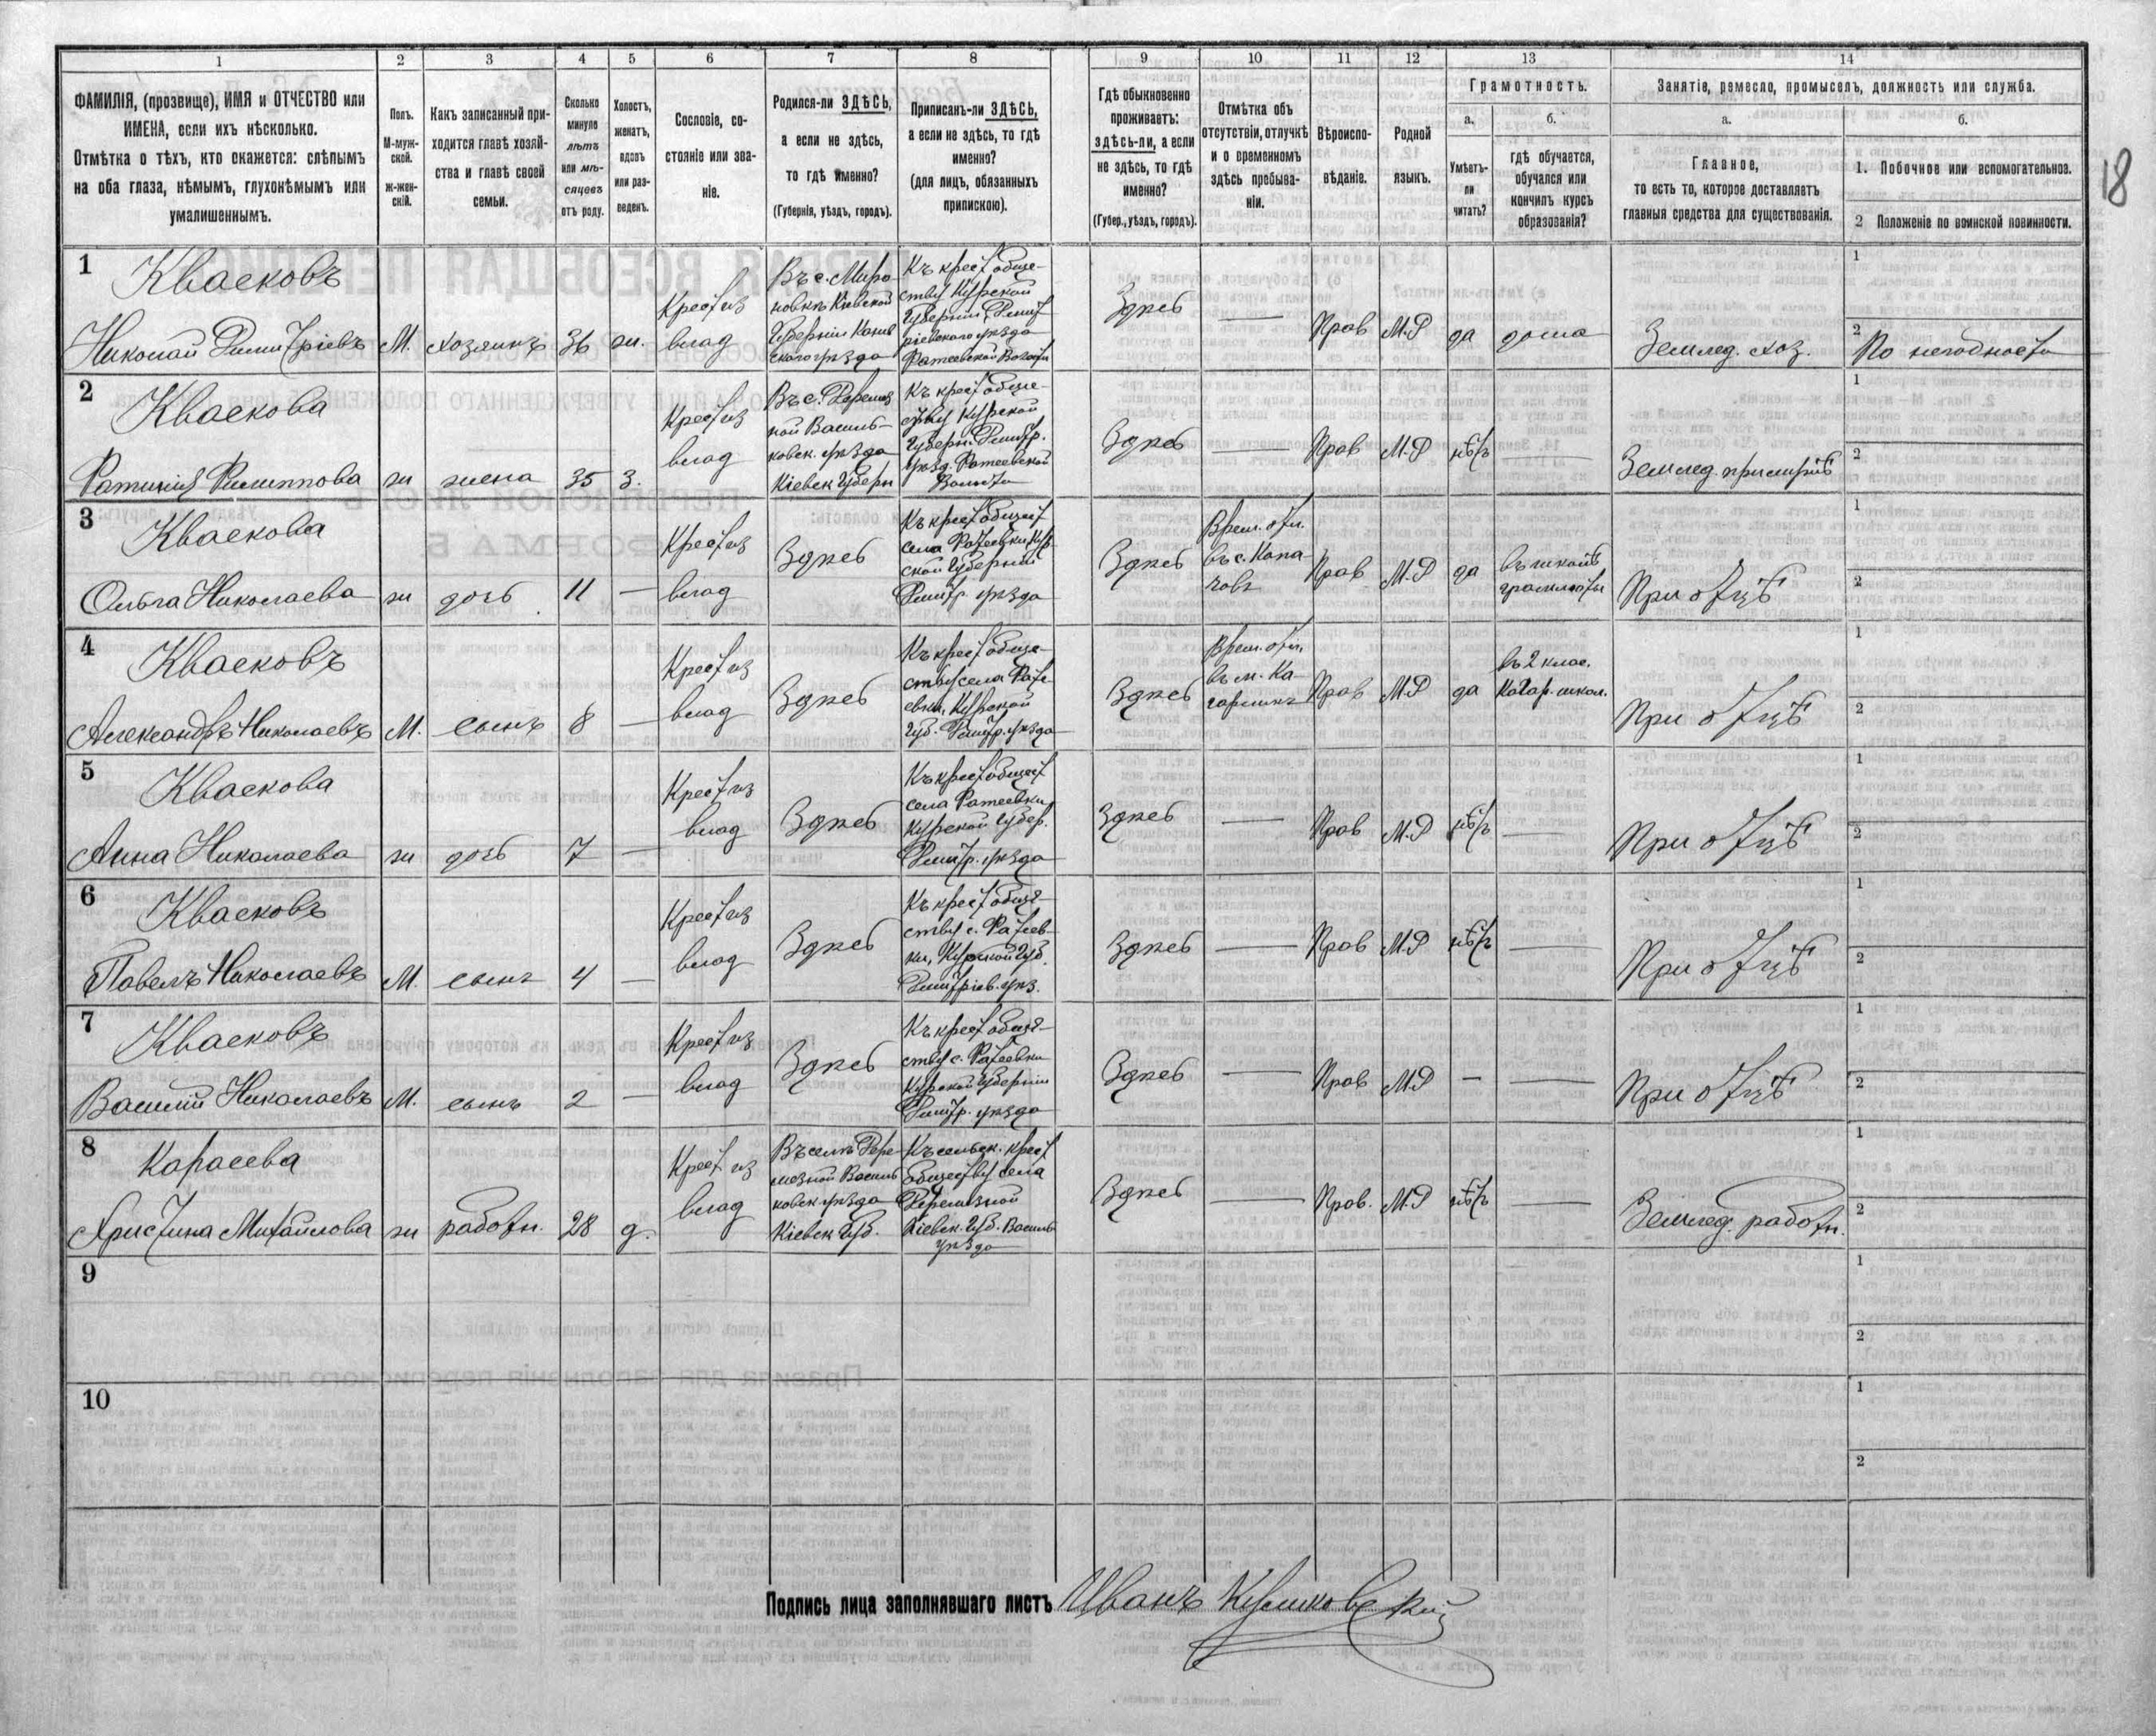 18
1
2
3
4
5
6
7
8
9
10
11
12
13
14
ФАМИЛІЯ, (прозвище), ИМЯ и ОТЧЕСТВО или
ИМЕНА, если ихъ нѣсколько.
Отмѣтка о тѣхъ, кто окажется: слѣпымъ
на оба глаза, нѣмымъ, глухонѣмымъ или
умалишеннымъ.
Полъ.
М-муж-
ской.
ж-жен-
скій.
Какъ записанный при-
ходится главѣ хозяй-
ства и главѣ своей
семьи.
Сколько
минуло
лѣтъ
или мѣ-
сяцевъ
отъ роду.
Холостъ,
женатъ,
вдовъ
или раз-
веденъ.
Сословіе, со-
стояніе или зва-
ніе.
Родился-ли ЗДѢСЬ,
а если не здѣсь,
то гдѣ именно?
(Губернія, уѣздъ, городъ).
Приписанъ-ли ЗДѢСЬ,
а если не здѣсь, то гдѣ
именно?
(для лицъ, обязанныхъ
припискою).
Гдѣ обыкновенно
проживаетъ:
здѣсь-ли, а если
не здѣсь, то гдѣ
именно?
(Губер., уѣздъ, городъ).
Отмѣтка объ
отсутствіи, отлучкѣ
и о временномъ
здѣсь пребыва-
ніи.
Вѣроиспо-
вѣданіе.
Родной
языкъ.
Грамотность.
а.
Умѣетъ-
ли
читать?
б.
гдѣ обучается,
обучался или
кончилъ курсъ
образованія?
Занятіе, ремесло, промыселъ, должность или служба.
а.
Главное,
то есть то, которое доставляетъ
главныя средства для существованія.
б.
1. Побочное или вспомогательное.
2 Положеніе по воинской повинности.
1
Квасковъ
Николай Димитріевъ
М.
хозяинъ
36
ж.
Крест из
влад
Въ с. Миро
новкѣ Кіевской
Губерніи Канев
скаго уѣзда
Къ крест обще-
ству Курской
Губерніи, Димит
ріевскаго уѣзда
Фатеевской Волости
Здѣсь
—
Прав
М.Р
да
дома
Землед. хоз.
1
2
По негодности
2
Кваскова
Фатинія Филиппова
ж
жена
35
З.
Крест из
влад
Въ с. Деремез
ной Василь-
ковск. уѣзда
Кіевск Губерн
Къ крест обще-
ству Курской
Губерн. Димитр.
уѣзд. Фатеевской
Волости
Здѣсь
—
Прав
М.Р
нѣтъ
—
1
2
3
Кваскова
Ольга Николаева
ж
дочь
11
—
Крест из
влад
Здѣсь
Къ крест общест
села Фатеевки Кур
ской Губерніи
Димитр. уѣзда
Здѣсь
Врем. отл.
въ с. Кага
Прав
М.Р
да
въ школѣ
грамоты
При отцѣ
1
2
4
Квасковъ
Александръ Николаевъ
М.
сынъ
8
—
Крест из
влад
Здѣсь
Къ крест обще-
ству села Фате
евки, Курской
Губ. Димитр. уѣзда
Здѣсь
Врем. отл.
въ м. Ка
гарликъ
Прав
М.Р
да
въ 2 клас.
Кагар. школ.
При отцѣ
1
2
5
Кваскова
Анна Николаева
ж
дочь
7
—
Крест из
влад
Здѣсь
Къ крест общест
села Фатеевки
Курской Губер.
Димитр. уѣзда
Здѣсь
—
Прав
М.Р
нѣтъ
—
При отцѣ
1
2
6
Квасковъ
Павелъ Николаевъ
М.
сынъ
4
—
Крест из
влад
Здѣсь
Къ крест обще-
ству с. Фатеев
ки, Курской Губ.
Димитріев. уѣз.
Здѣсь
—
Прав
М.Р
нѣтъ
—
При отцѣ
1
2
7
Квасковъ
Василій Николаевъ
М.
сынъ
2
—
Крест из
влад
Здѣсь
Къ крест обще-
ству с. Фатеевки
Курской Губерніи
Димитр. уѣзда
Здѣсь
—
Прав
М.Р
—
—
При отцѣ
1
2
8
Карасева
Христина Михайлова
ж
работн.
28
д.
Крест из
влад
Въ селѣ Дере
мезной Василь
ковск уѣзда
Кіевск Губ.
Къ сельск. крест
обществу села
Деремезной
Кіевск. Губ. Василь
уѣзда
Здѣсь
—
Прав.
М.Р
нѣтъ
—
Землед. работн.
1
2
9
1
2
10
1
2
Подпись лица заполнявшаго листъ Иванъ Куликовскій